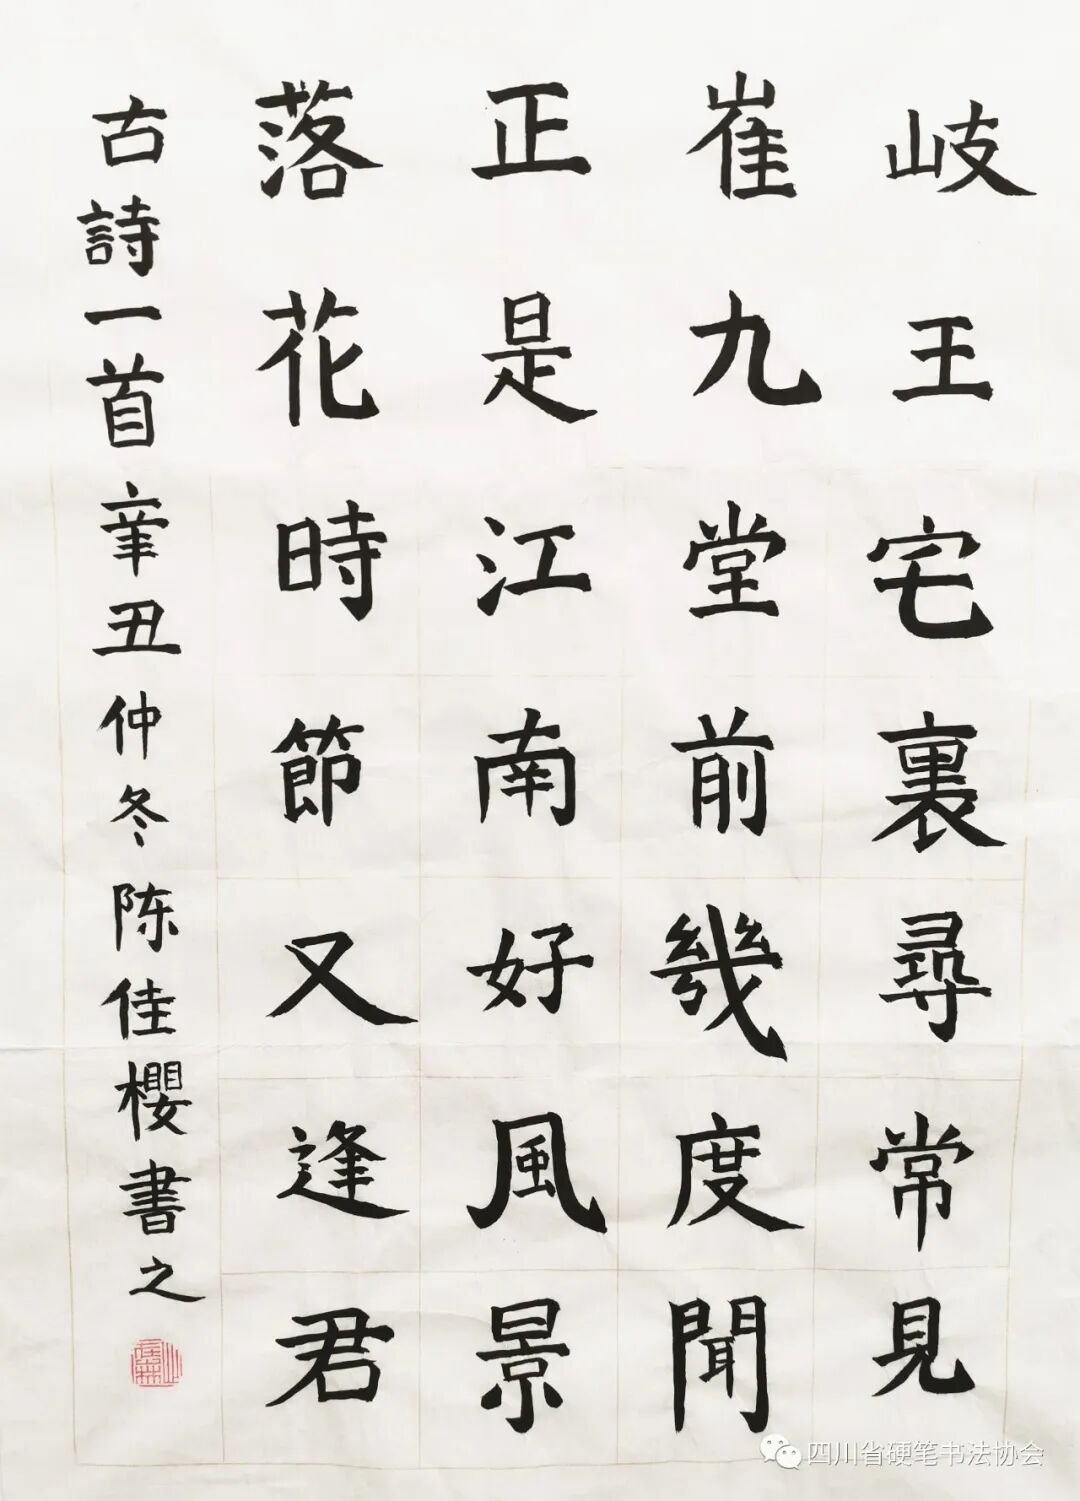 岐王宅裏尋常見
崔九堂前幾度聞
正是江南好風景
落花時節又逢君
古詩一首辛丑仲冬陈佳櫻書之
四川省硬笔书法协会